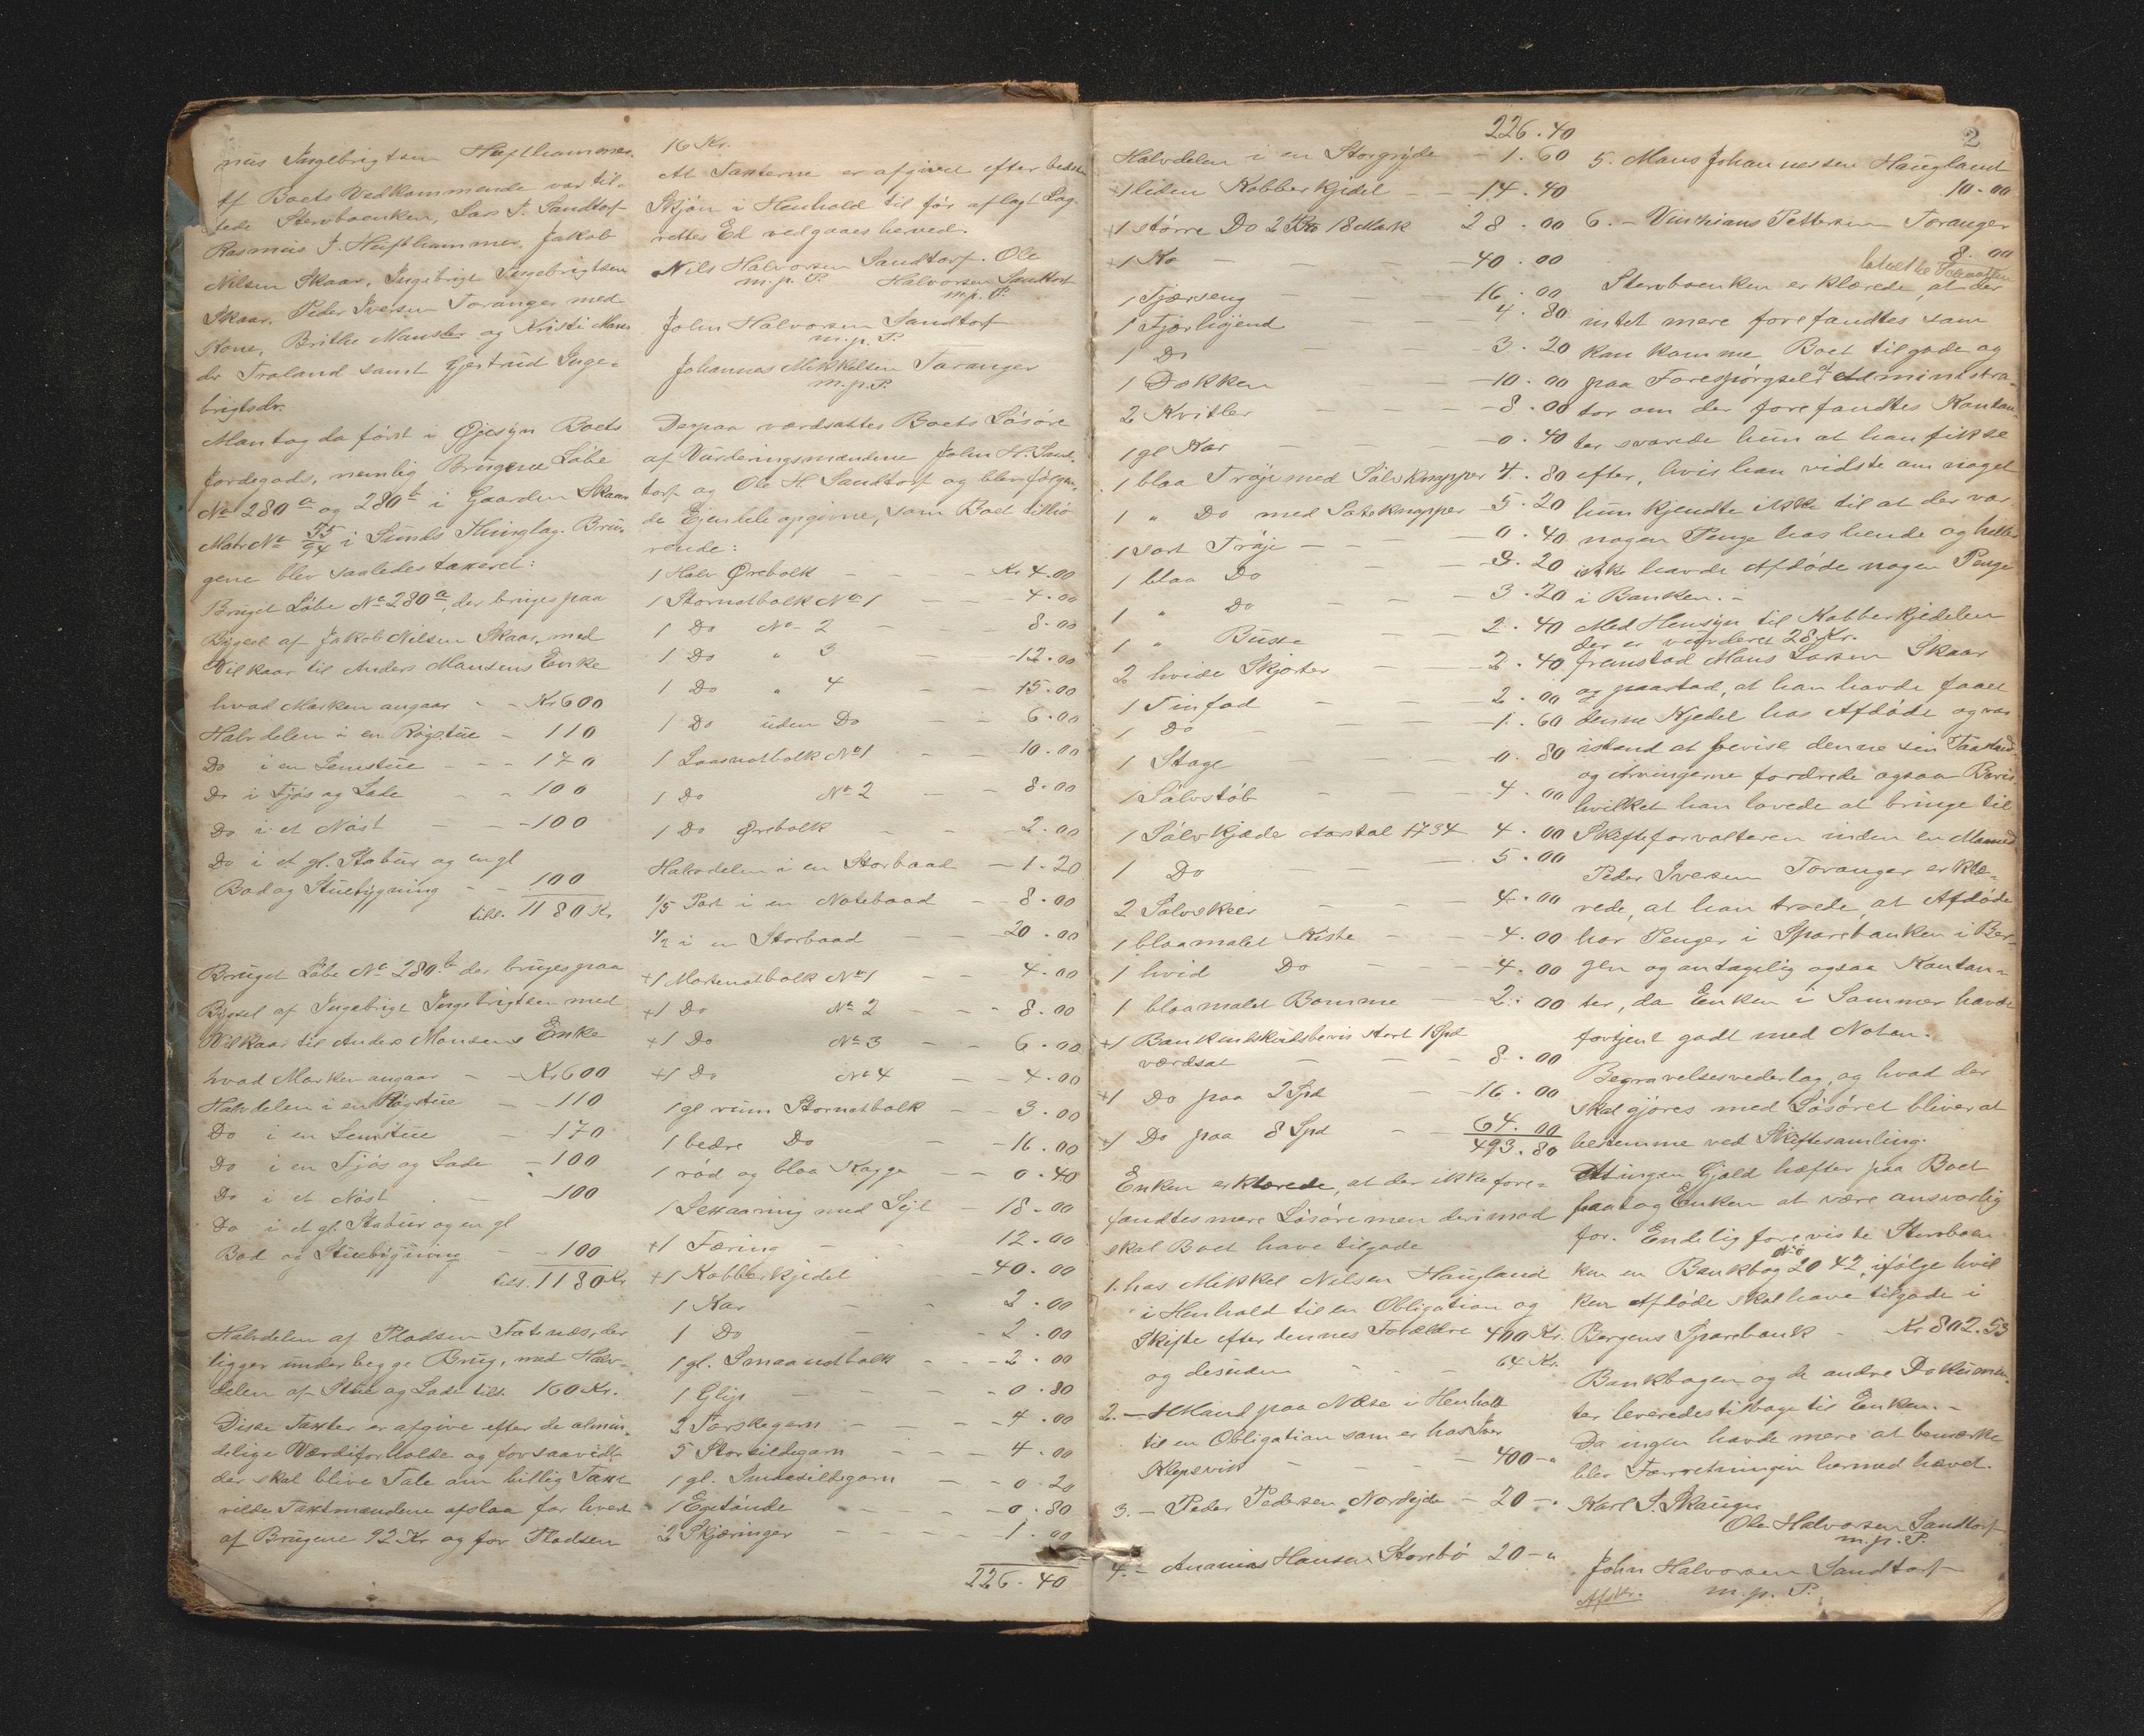 nus Ingebrigtsen Hufthammer.
Af Boets Vedkommende var til-
stede Stervboenken, Lars J. Sandtorf
Rasmus J. Hufthammer, Jakob
Nilsen Skaar, Ingebrigt Ingebrigtsen
Skaar, Peder Iversen Toranger med
Kone, Brithe Mansdr og Kristi Mans
dr Træland samt Gjertrud Inge-
brigtsdr.
Man tog da først i Øjesyn Boets
Jordegods, nemlig Brugene Løbe
No 280a og 280b i Gaarden Skaar
Matr No 55/94 i Sunds Thinglag. Bru-
gene blev saaledes taxeret:
Bruget Løbe No 280a, der bruges paa
Bygsel af Jakob Nilsen Skaar, med
Vilkaar til Anders Mansens Enke
hvad Marken angaar - - Kr 600
Halvdelen i en Røgstue - 110
Do i en Lemstue - - - 170
Do i Fjøs og Lade - - 100
Do i et Nøst - - - 100
Do i et gl. Stabur og en gl
Bod og Stuebygning - - 100
tils. 1180 Kr.
Bruget Løbe No 280b der bruges paa
Bygsel af Ingebrigt Ingebrigtsen med
Vilkaar til Anders Monsens Enke
hvad Marken angaar - - Kr 600
Halvdelen i en Røgstue - 110
Do i en Lemstue - 170
Do i en Fjøs og Lade - 100
Do i et Nøst - 100
Do i et gl. Stabur og en gl
Bod og Stuebygning - - 100
tils. 1180 Kr
Halvdelen af Pladsen Toftenæs, der
ligger under begge Brug, med Halv-
delen af Stue og Lade tils. 160 Kr.
Disse Taxter er afgivne efter de almin-
delige Værdiforholde og forsaavidt
der skal blive Tale om billig Taxt
vilde Taxtmændene afslaa for hvert
af Brugene 92 Kr og for Pladsen
16 Kr.
At Taxterne er afgivet efter bedste
Skjøn i Henhold til før aflagt Lag-
rettes Ed vedgaaes herved.
Nils Halvorsen Sandtorf. Ole
m. p. P. Halvorsen Sandtorf
m. p. P.
John Halvorsen Sandtorf
m. p. P.
Johannes Mikkelsen Toranger
m. p. P.
Derpaa værdsattes Boets Løsøre
af Vurderingsmændene John H. Sand-
torf og Ole H. Sandtorf og blev følgen-
de Ejendele opgivne, som Boet tilhø-
rende:
1 Halv Ørebolk - - - Kr 4.00
1 Stornotbolk No 1 - - 4.00
1 Do No 2 - - 8.00
1 Do " 3 - - 12.00
1 Do " 4 - - 15.00
1 Do uden Do - - 6.00
1 Laasnotbolk No 1 - - 10.00
1 Do No 2 - - 8.00
1 Do Ørebolk - - 2.00
Halvdelen i en Storbaad - 1.20
1/5 Part i en Notebaad - - 8.00
1/2 i en Storbaad - - 20.00
+1 Mortenotbolk No 1 - - 4.00
+1 Do No 2 - - 8.00
+1 Do No 3 - - 6.00
+1 Do No 4 - - 4.00
1 gl rum Stornotbolk - - 3.00
1 bedre Do - - 16.00
1 rød og blaa Kagge - - 0.40
1 Sexaaring med Sejl - 18.00
+1 Færing - - 12.00
+1 Kobberkjedel - 40.00
1 Kar - - 2.00
1 Do - - 2.00
1 gl. Smaanotbolk - - 2.00
1 Glip - - - 0.80
2 Torskegarn - - - 4.00
5 Storsildegarn - - - 4.00
1 gl. Smaasildegarn - - 0.20
1 Egetønde - - - 0.80
2 Skjæringer - - - 1.00
226.40
2
226.40
Halvdelen i en Storgryde - 1.60
+1 liden Kobberkjedel - - 14.40
+1 større Do 2 18 Mark 28.00
+1 Ko - - - 40.00
1 Fjærseng - - - 16.00
1 Fjærhøjend - - - 4.80
1 Do - - - 3.20
1 Dokken - - - 10.00
2 Kvitler - - - 8.00
1 gl Kar - - - 0.40
1 blaa Trøje med Sølvknapper 4.80
1 " Do med Knapper - 5.20
1 sort Trøje - - - 0.40
1 blaa Do - - - 3.20
1 " Do - - - 3.20
1 " Buxe - - 2.40
2 hvide Skjorter - - 2.40
1 Tinfad - - - 2.00
1 Do - - - 1.60
1 Stage - - - 0.80
1 Sølvstøb - - - 4.00
1 Sølvkjæde Aarstal 1734 4.00
1 Do - - - 5.00
2 Sølvskeer - - - 4.00
1 blaamalet Kiste - - 4.00
1 hvid Do - - - 4.00
1 blaamalet Bomme - - 2.00
+1 Bankindskudsbevis stort 1 Spd
værdsat - - - 8.00
+1 Do paa 2 Spd - 16.00
+1 Do paa 8 Spd - - 64.00
493.80
Enken erklærede, at der ikke fore-
fandtes mere Løsøre men derimod
skal Boet have tilgode
1. hos Mikkel Nilsen Haugland
i Henhold til en Obligation og
Skifte efter dennes Forældre 400 Kr.
og desuden - - 64 Kr.
2. - paa Næse i Henhold
til en Obligation som er hos Iver
Klepsvik - - - 400 - "
3. - Peder Pedersen Nordejde - 20 - "
4. - Ananias Hansen Storebø 20 - "
5. Mans Johannessen Haugland
10.00
6. - Pettersen Toranger
8.00
Stervboenken erklærede, at der
intet mere forefandtes som
kan komme Boet tilgode og
paa Forespørgsel af Administra-
tor om der forefandtes Kontan-
ter svarede hun at han fik se
efter, hvis han vidste om noget
hun kjendte ikke til at der var
nogen Penge hos hende og heller
ikke havde Afdøde nogen Penge
i Banken. -
Med Hensyn til Kobberkjedelen
der er vurderet 28 Kr.
fremstod Mans Larsen Skaar
og paastod, at han havde faaet
denne Kjedel hos Afdøde og var
istand at bevise denne sin Paastand
og Arvingerne fordrede ogsaa Bevis
hvilket han lovede at bringe til
Skifteforvalteren inden en Maaned
Peder Iversen Toranger erklæ-
rede, at han troede, at Afdøde
har Penger i Sparebanken i Ber-
gen og antagelig ogsaa Kontan-
ter, da Enken i Sommer havde
fortjent godt med Noten.
Begravelsesvederlag, og hvad der
skal gjøres med Løsøret bliver at
bestemme ved Skiftesamling.
At ingen Gjæld hæfter paa Boet
paatog Enken at være ansvarlig
for. Endelig foreviste Stervboen-
ken en Bankbog No 2042, ifølge hvil
ken Afdøde skal have tilgode i
Bergens Sparebank - Kr 802.53
Bankbogen og de andre Dokumen-
ter leveredes tilbage til Enken. -
Da ingen havde mere at bemærke
blev Forretningen hermed hævet.
Karl J. Skauge
Ole Halvorsen Sandtorf
m. p. P.
John Halvorsen Sandtorf
Afskr. m. p. P.